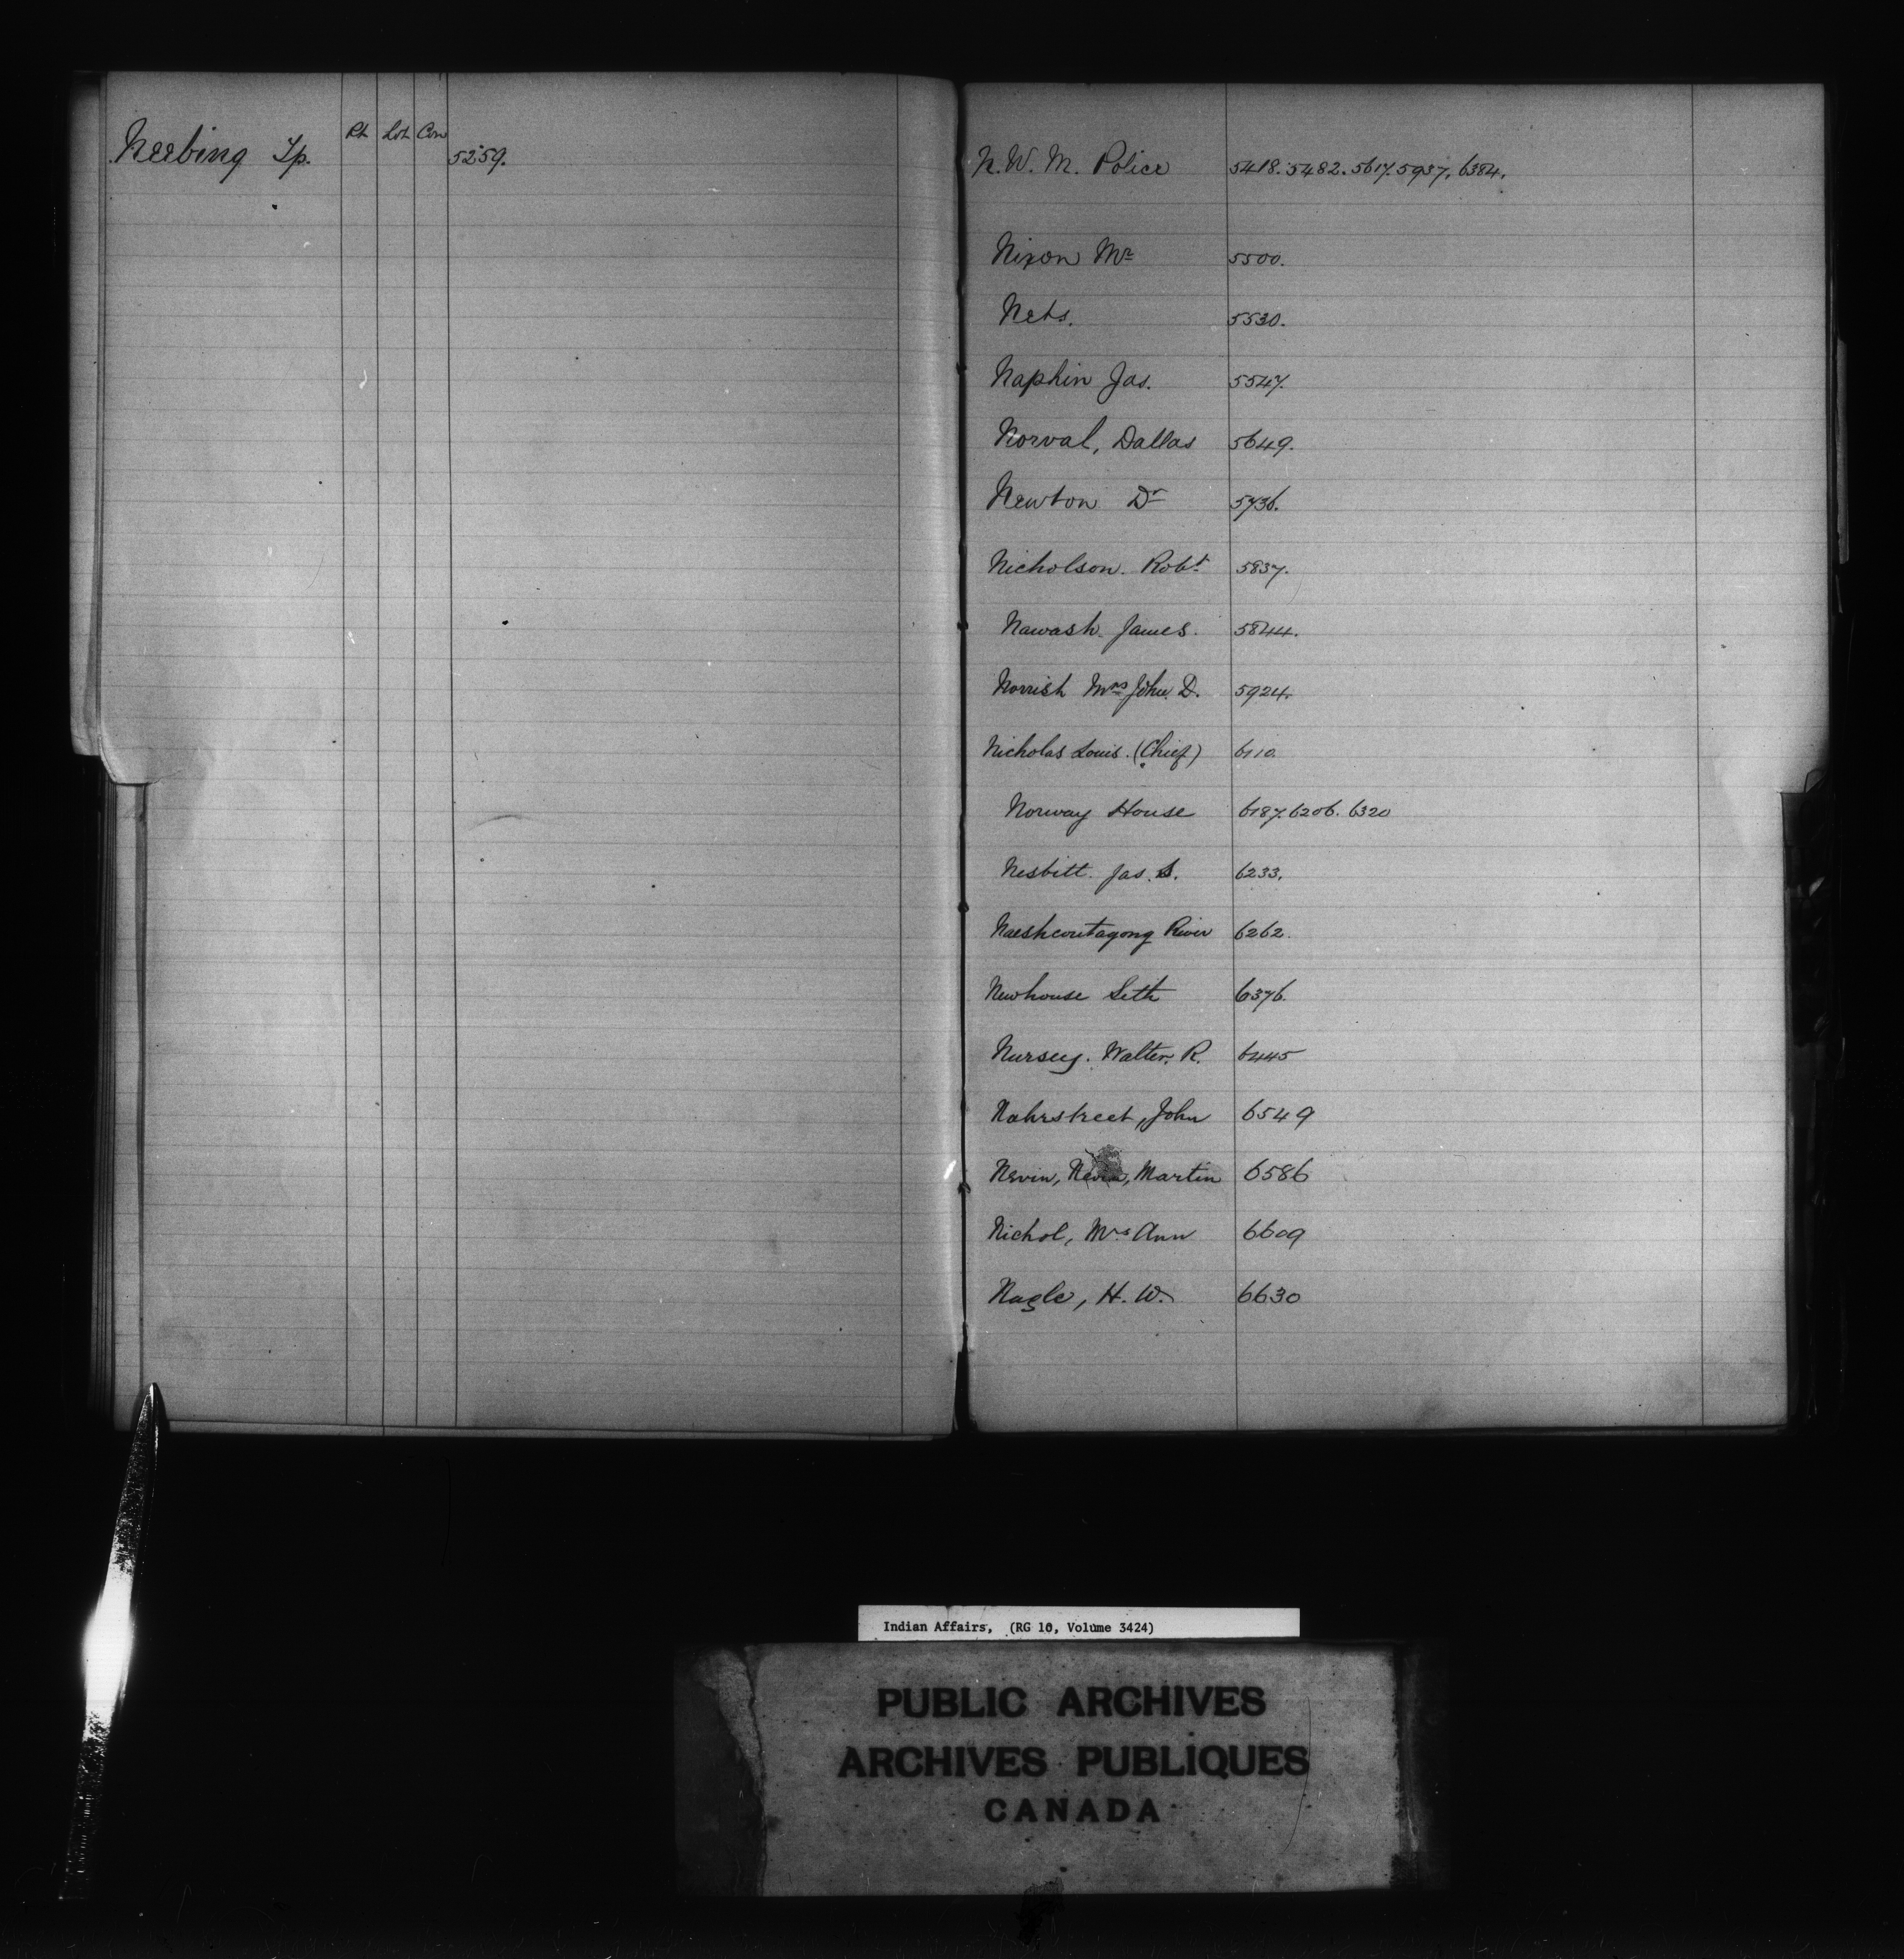 Neebing Tp. Pt Lot Con 5259.
N. W. M. Police 5418. 5482. 5617. 5937. 6384.
Nixon Mr 5500.
Nets. 5530.
Naphin Jas. 5547.
Norval, Dallas 5649.
Newton Dr 5736.
Nicholson. Robt 5837.
Nawash. James. 5844.
Norrish Mrs John. D. 5924.
Nicholas Louis. (Chief) 6110.
Norway House 6187. 6206. 6320
Nesbitt. Jas. S. 6233.
Naeshcoutagong River 6262.
Newhouse Seth 6376.
Nursey. Walter. R. 6445
Nahrstreet, John 6549
Nevin, Nevin, Martin 6586
Nichol, Mrs Ann 6609
Nagle, H. W. 6630
Indian Affairs, (RG 10, Volume 3424)
PUBLIC ARCHIVES
ARCHIVES PUBLIQUES
CANADA